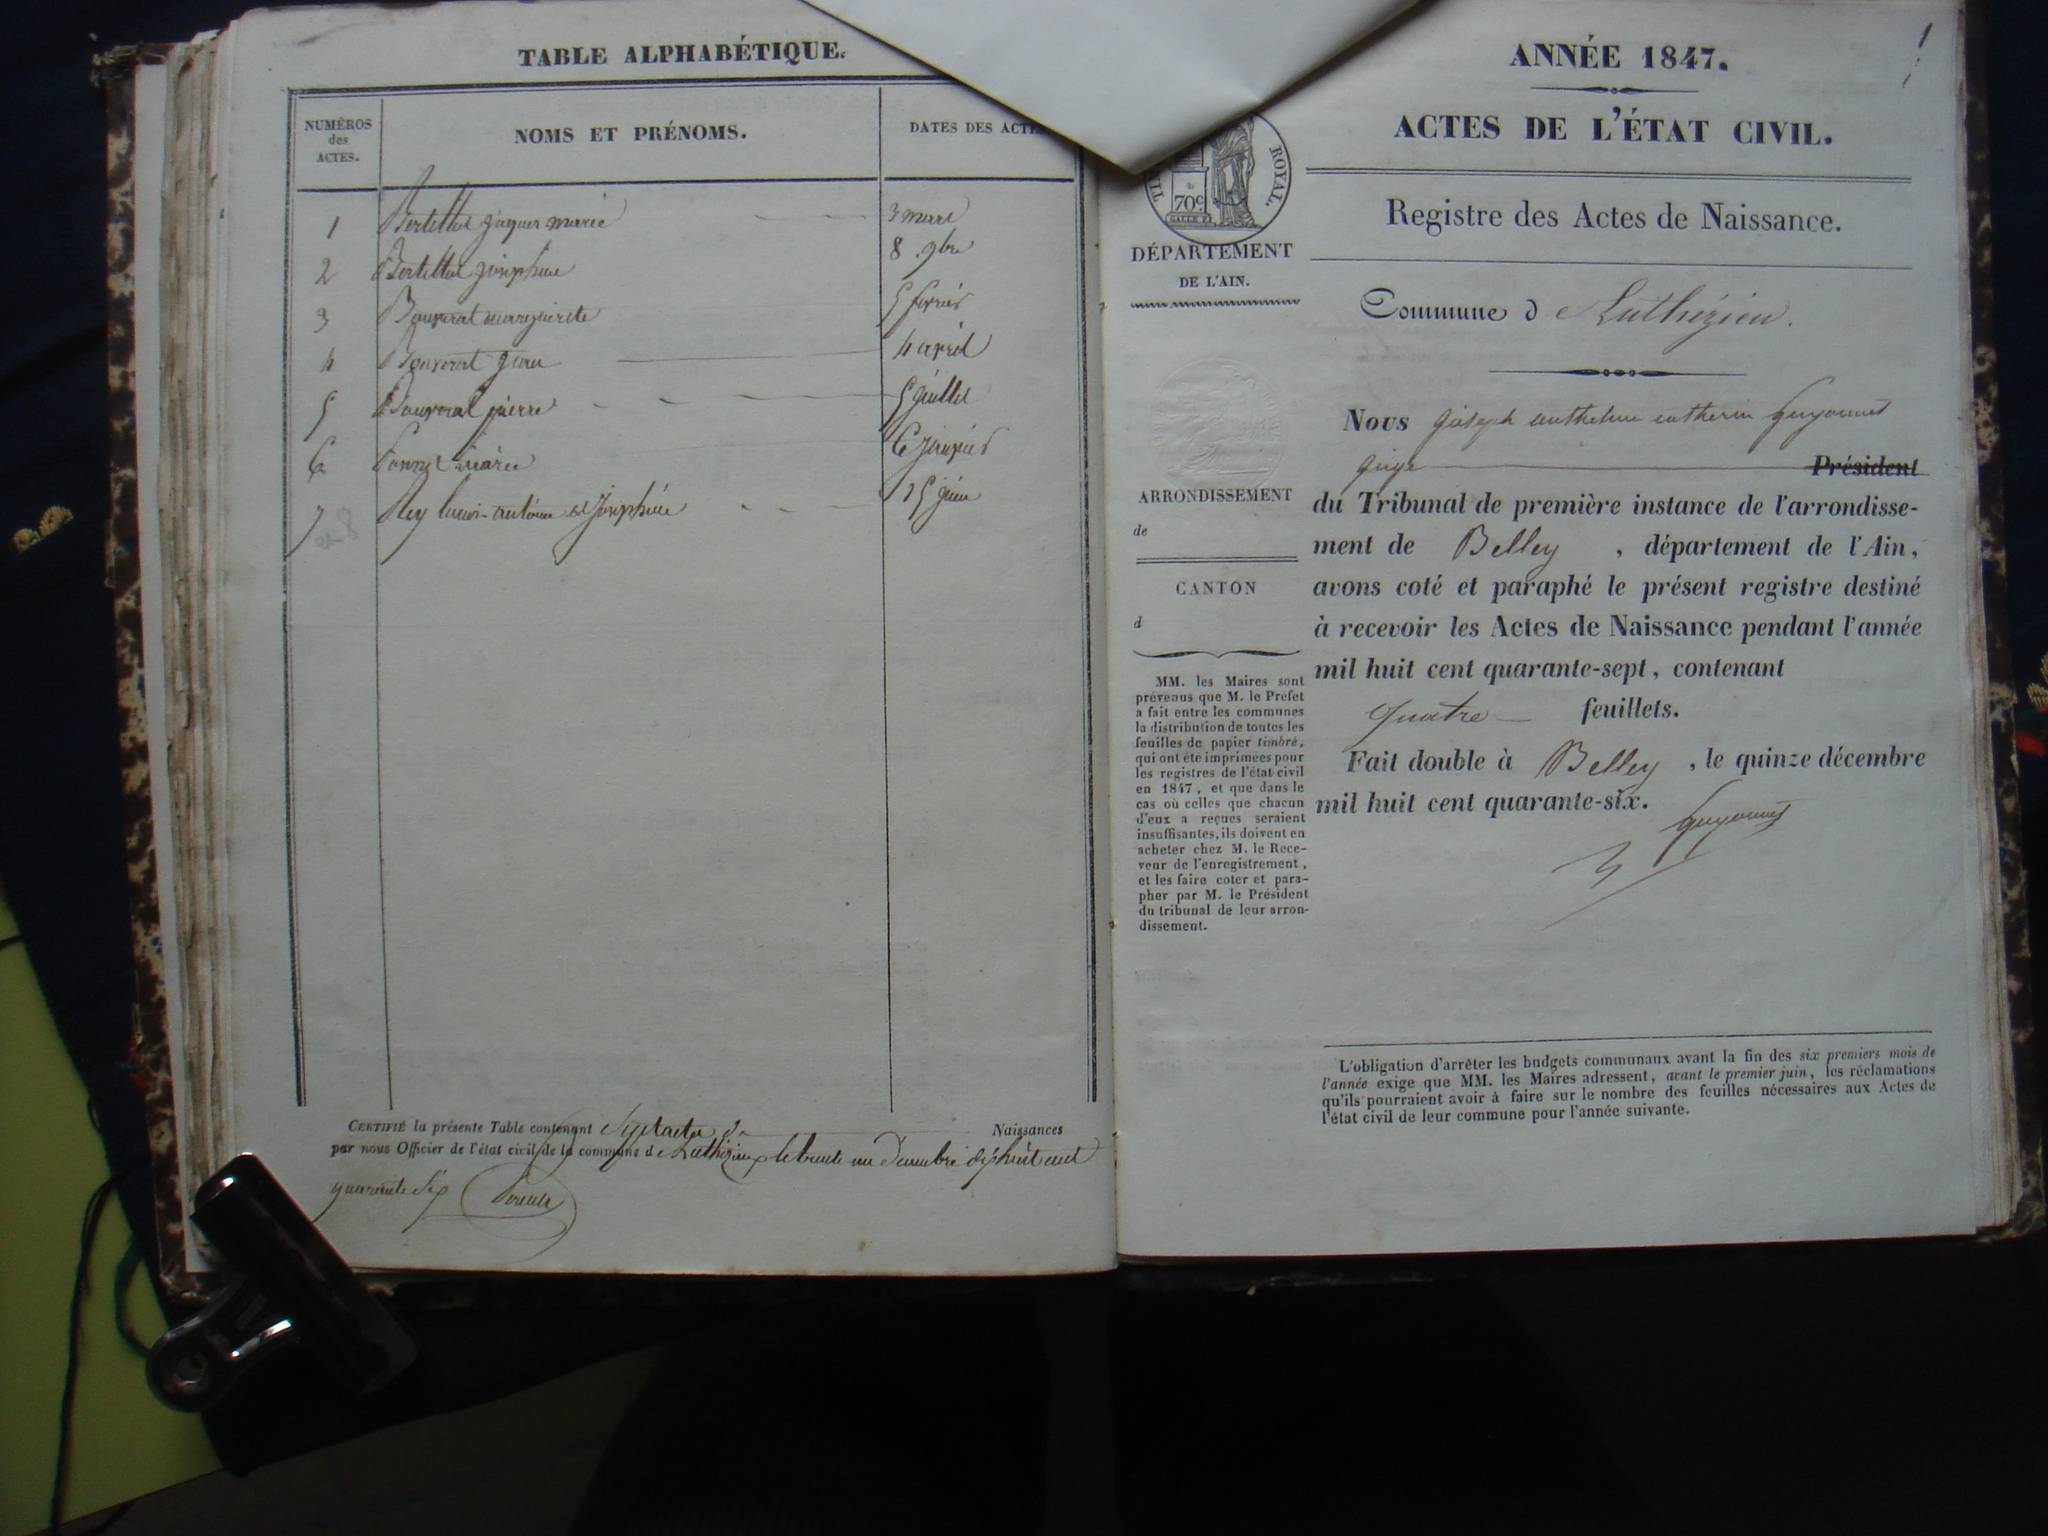 TABLE ALPHABÉTIQUE.
NUMÉROS
des
ACTES.
NOMS ET PRÉNOMS.
DATES DES ACTES
1 jaques marie 3 mars
2 josephine 8 9bre
3 Bouvrat marguerite 5 fevrier
4 Bouvrat 4 avril
5 Bouvrat pierre 5 juillet
6 marie 6 janvier
7 Rey antoine et Joséphine 25 juin
CERTIFIÉ la présente Table contenant Naissances
par nous Officier de l'état civil de la commune de Luthézieu le trente un Décembre huit cent
quarante six
1
ANNÉE 1847.
ACTES DE L'ÉTAT CIVIL.
Registre des Actes de Naissance.
Commune de Luthézieu.
ROYAL.
70c.
DÉPARTEMENT
DE L'AIN.
ARRONDISSEMENT
de
CANTON
d
MM. les Maires sont
prévenus que M. le Prefet
a fait entre les communes
la distribution de toutes les
feuilles de papier timbré,
qui ont été imprimées pour
les registres de l'état civil
en 1847, et que dans le
cas où celles que chacun
d'eux a reçues seraient
insuffisantes, ils doivent en
acheter chez M. le Rece-
veur de l'enregistrement,
et les faire coter et para-
pher par M. le Président
du tribunal de leur arron-
dissement.
Nous Joseph anthelme catherin Guyonnet
juge Président
du Tribunal de première instance de l'arrondisse-
ment de Belley, département de l'Ain,
avons coté et paraphé le présent registre destiné
à recevoir les Actes de Naissance pendant l'année
mil huit cent quarante-sept, contenant
quatre feuillets.
Fait double à Belley, le quinze décembre
mil huit cent quarante-six.
Guyonnet
L'obligation d'arrêter les budgets communaux avant la fin des six premiers mois de
l'année exige que MM. les Maires adressent, avant le premier juin, les réclamations
qu'ils pourraient avoir à faire sur le nombre des feuilles nécessaires aux Actes de
l'état civil de leur commune pour l'année suivante.